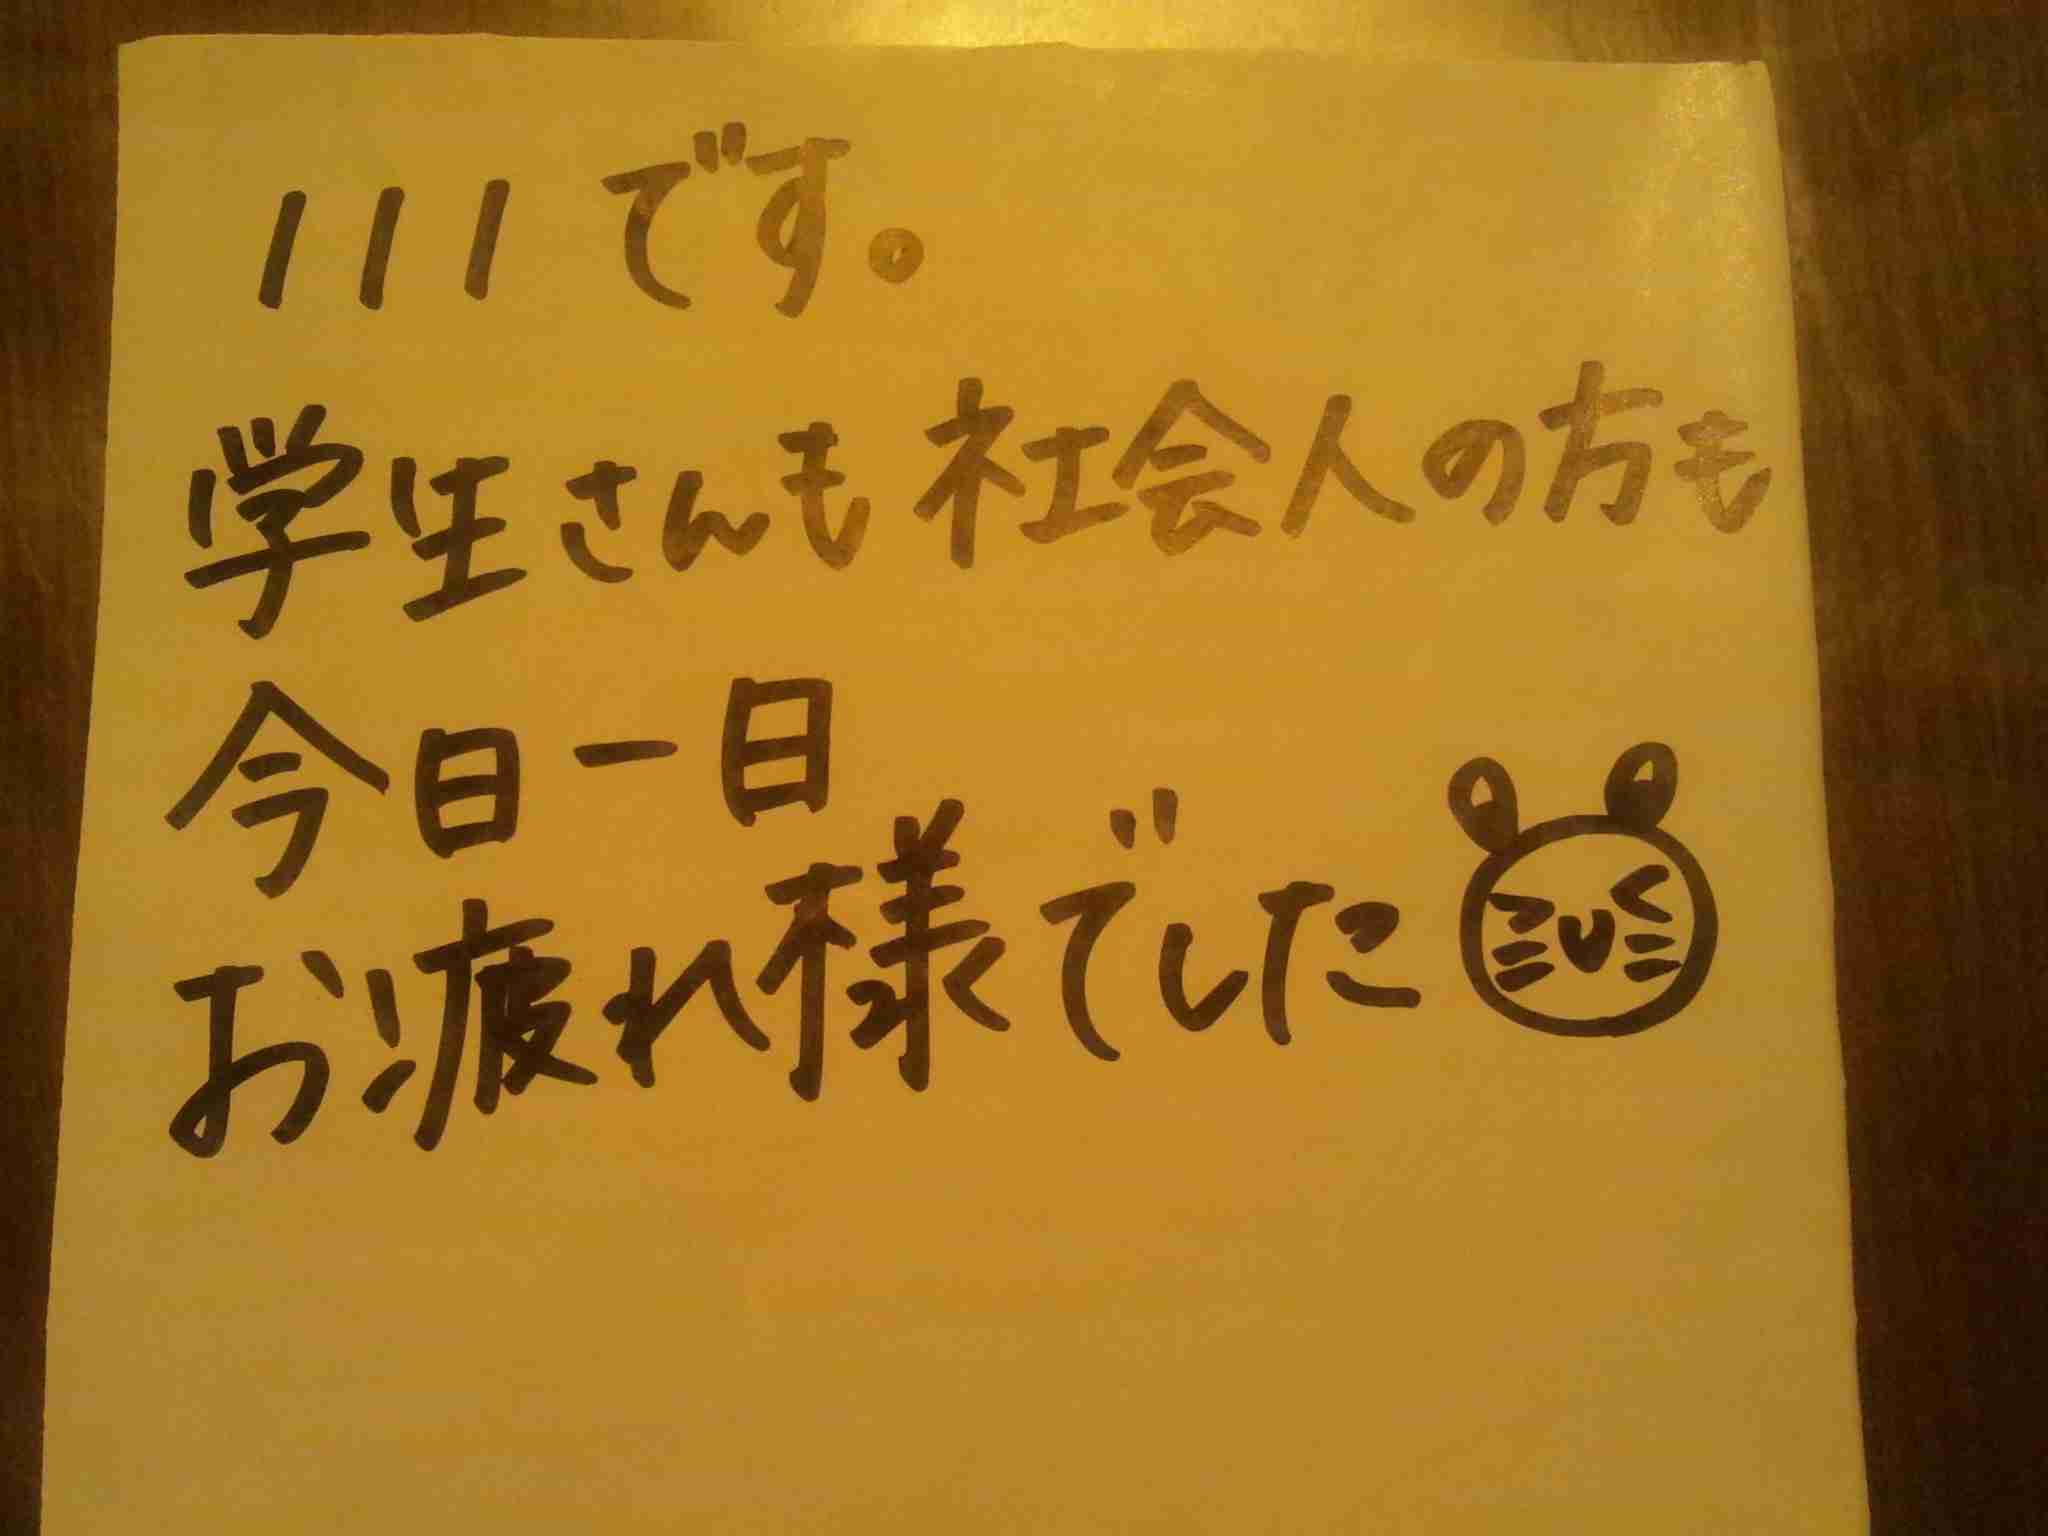 111です。
学生さんも社会人の方も
今日一日
お疲れ様でした